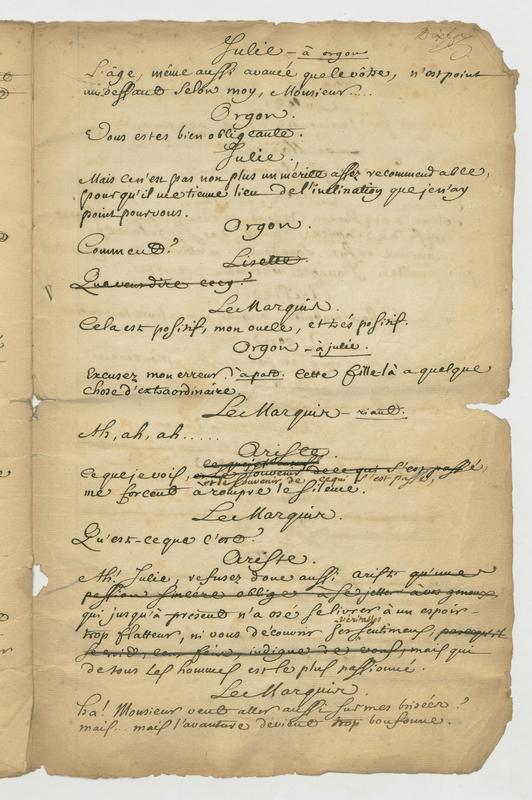 Julie - à orgon
L'âge, même aussi avancé que le vôtre, n'est point
un deffaut selon moy, Monsieur....
Orgon.
Vous estes bien obligeante.
Julie.
Mais ce n'est pas non plus un mérite assez recommendable,
pour qu'il me tienne lieu de l'inclination que je n'ay
point pour vous.
Orgon.
Comment?
Lisette.
Que veut dire cecy?
Le Marquis.
Cela est positif, mon oncle, et très positif.
Orgon - à julie.
Excusez mon erreur. à part. Cette fille-là a quelque
chose d'extraordinaire.
Le Marquis - riant.
Ah, ah, ah.....
Ariste.
Ce que je vois, et le souvenir de ce qui s'est passé,
et le souvenir de ce qui s'est passé,
me forcent a rompre le silence.
Le Marquis.
Qu'est-ce que c'est?
Ariste.
Ah! Julie, refusez donc aussi ariste qu'une
passion sincère oblige à se jetter à vos genoux,
qui jusqu'à present n'a osé se livrer à un espoir
trop flatteur, ni vous decouvrir ses véritables sentimens,
mais qui
de tous les hommes est le plus passionné.
Le Marquis.
ha! Monsieur veut aller aussi sur mes brisées?
mais... mais l'avanture devient trop boufonne.